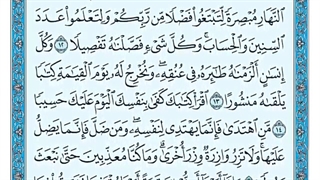 النَّهَارِ مُبْصِرَةً لِّتَبْتَغُوا۟ فَضْلًا مِّن رَّبِّكُمْ وَلِتَعْلَمُوا۟ عَدَدَ
ٱلسِّنِينَ وَٱلْحِسَابَ ۚ وَكُلَّ شَىْءٍ فَصَّلْنَٰهُ تَفْصِيلًا ١٢ وَكُلَّ
إِنسَٰنٍ أَلْزَمْنَٰهُ طَٰٓئِرَهُۥ فِى عُنُقِهِۦ ۖ وَنُخْرِجُ لَهُۥ يَوْمَ ٱلْقِيَٰمَةِ كِتَٰبًا
يَلْقَىٰهُ مَنشُورًا ١٣ ٱقْرَأْ كِتَٰبَكَ كَفَىٰ بِنَفْسِكَ ٱلْيَوْمَ عَلَيْكَ حَسِيبًا
١٤ مَّنِ ٱهْتَدَىٰ فَإِنَّمَا يَهْتَدِى لِنَفْسِهِۦ ۖ وَمَن ضَلَّ فَإِنَّمَا يَضِلُّ
عَلَيْهَا ۚ وَلَا تَزِرُ وَازِرَةٌ وِزْرَ أُخْرَىٰ ۗ وَمَا كُنَّا مُعَذِّبِينَ حَتَّىٰ نَبْعَثَ